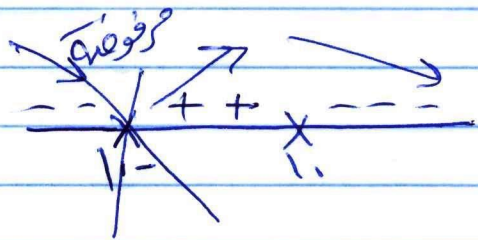 مرفوضة
- - + + - - -
-١٠ ١٠